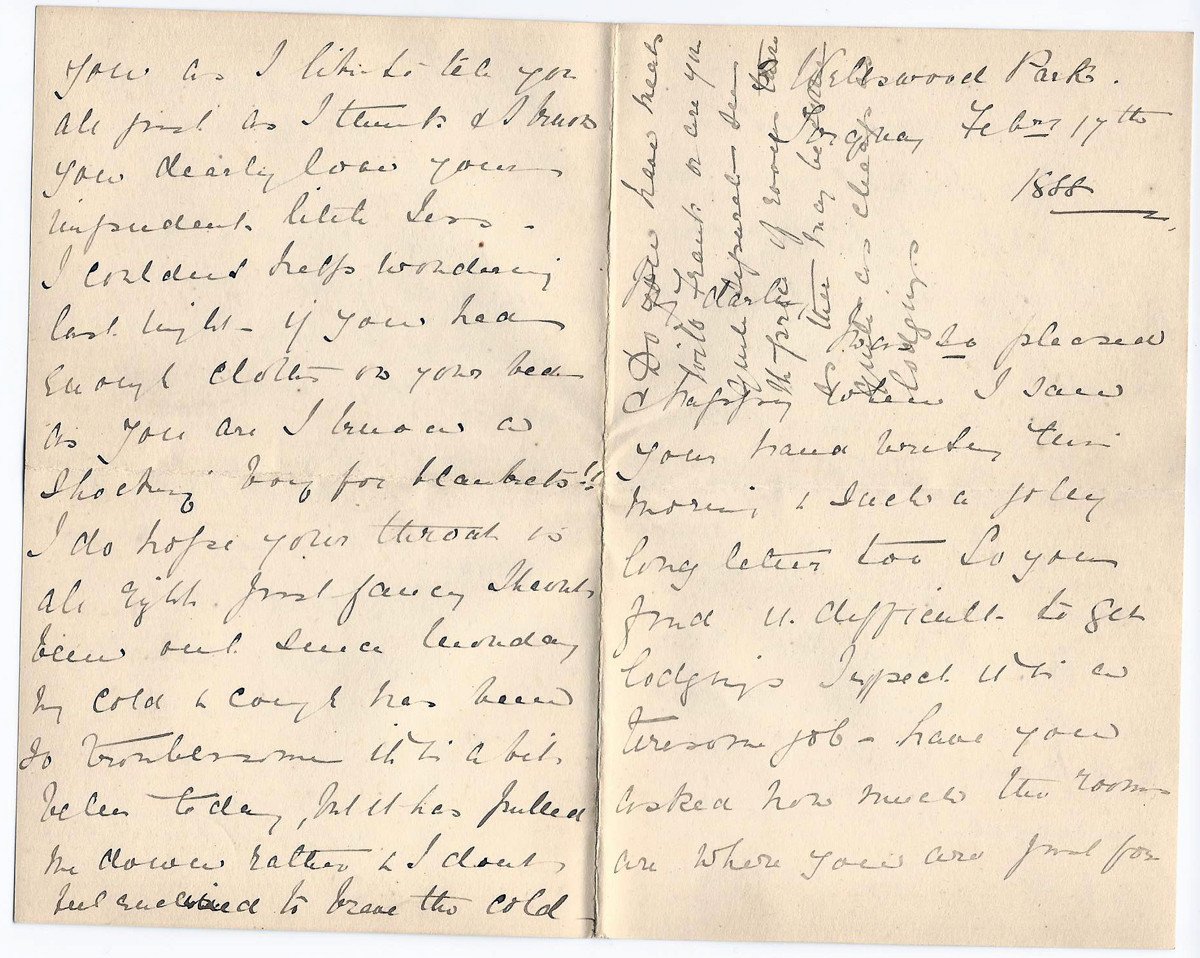 Wellswood Park.
Torquay Feby 17th
1888
My darling,
I was so pleased
& happy when I saw
your hand writing this
morning & such a jolly
long letter too So you
find it difficult to get
lodgings I expect it is a
tiresome job - have you
asked how much the rooms
are where you are just for
Do you have meals
with Frank or are you
quite separate
the price of rooms
as they may be
quite as cheap as
lodgings
you as I like to tell you
all just as I think & I know
you dearly love your
impudent little Jess -
I couldent help wondering
last night - if you had
enough clothes on your bed
as you are I know a
shocking boy for blankets!!
I do hope your throat is
all right just fancy I havent
been out since Monday
my cold & cough has been
so troublesome it is a bit
better today, but it has pulled
me down rather & I dont
feel enclined to brave the cold -